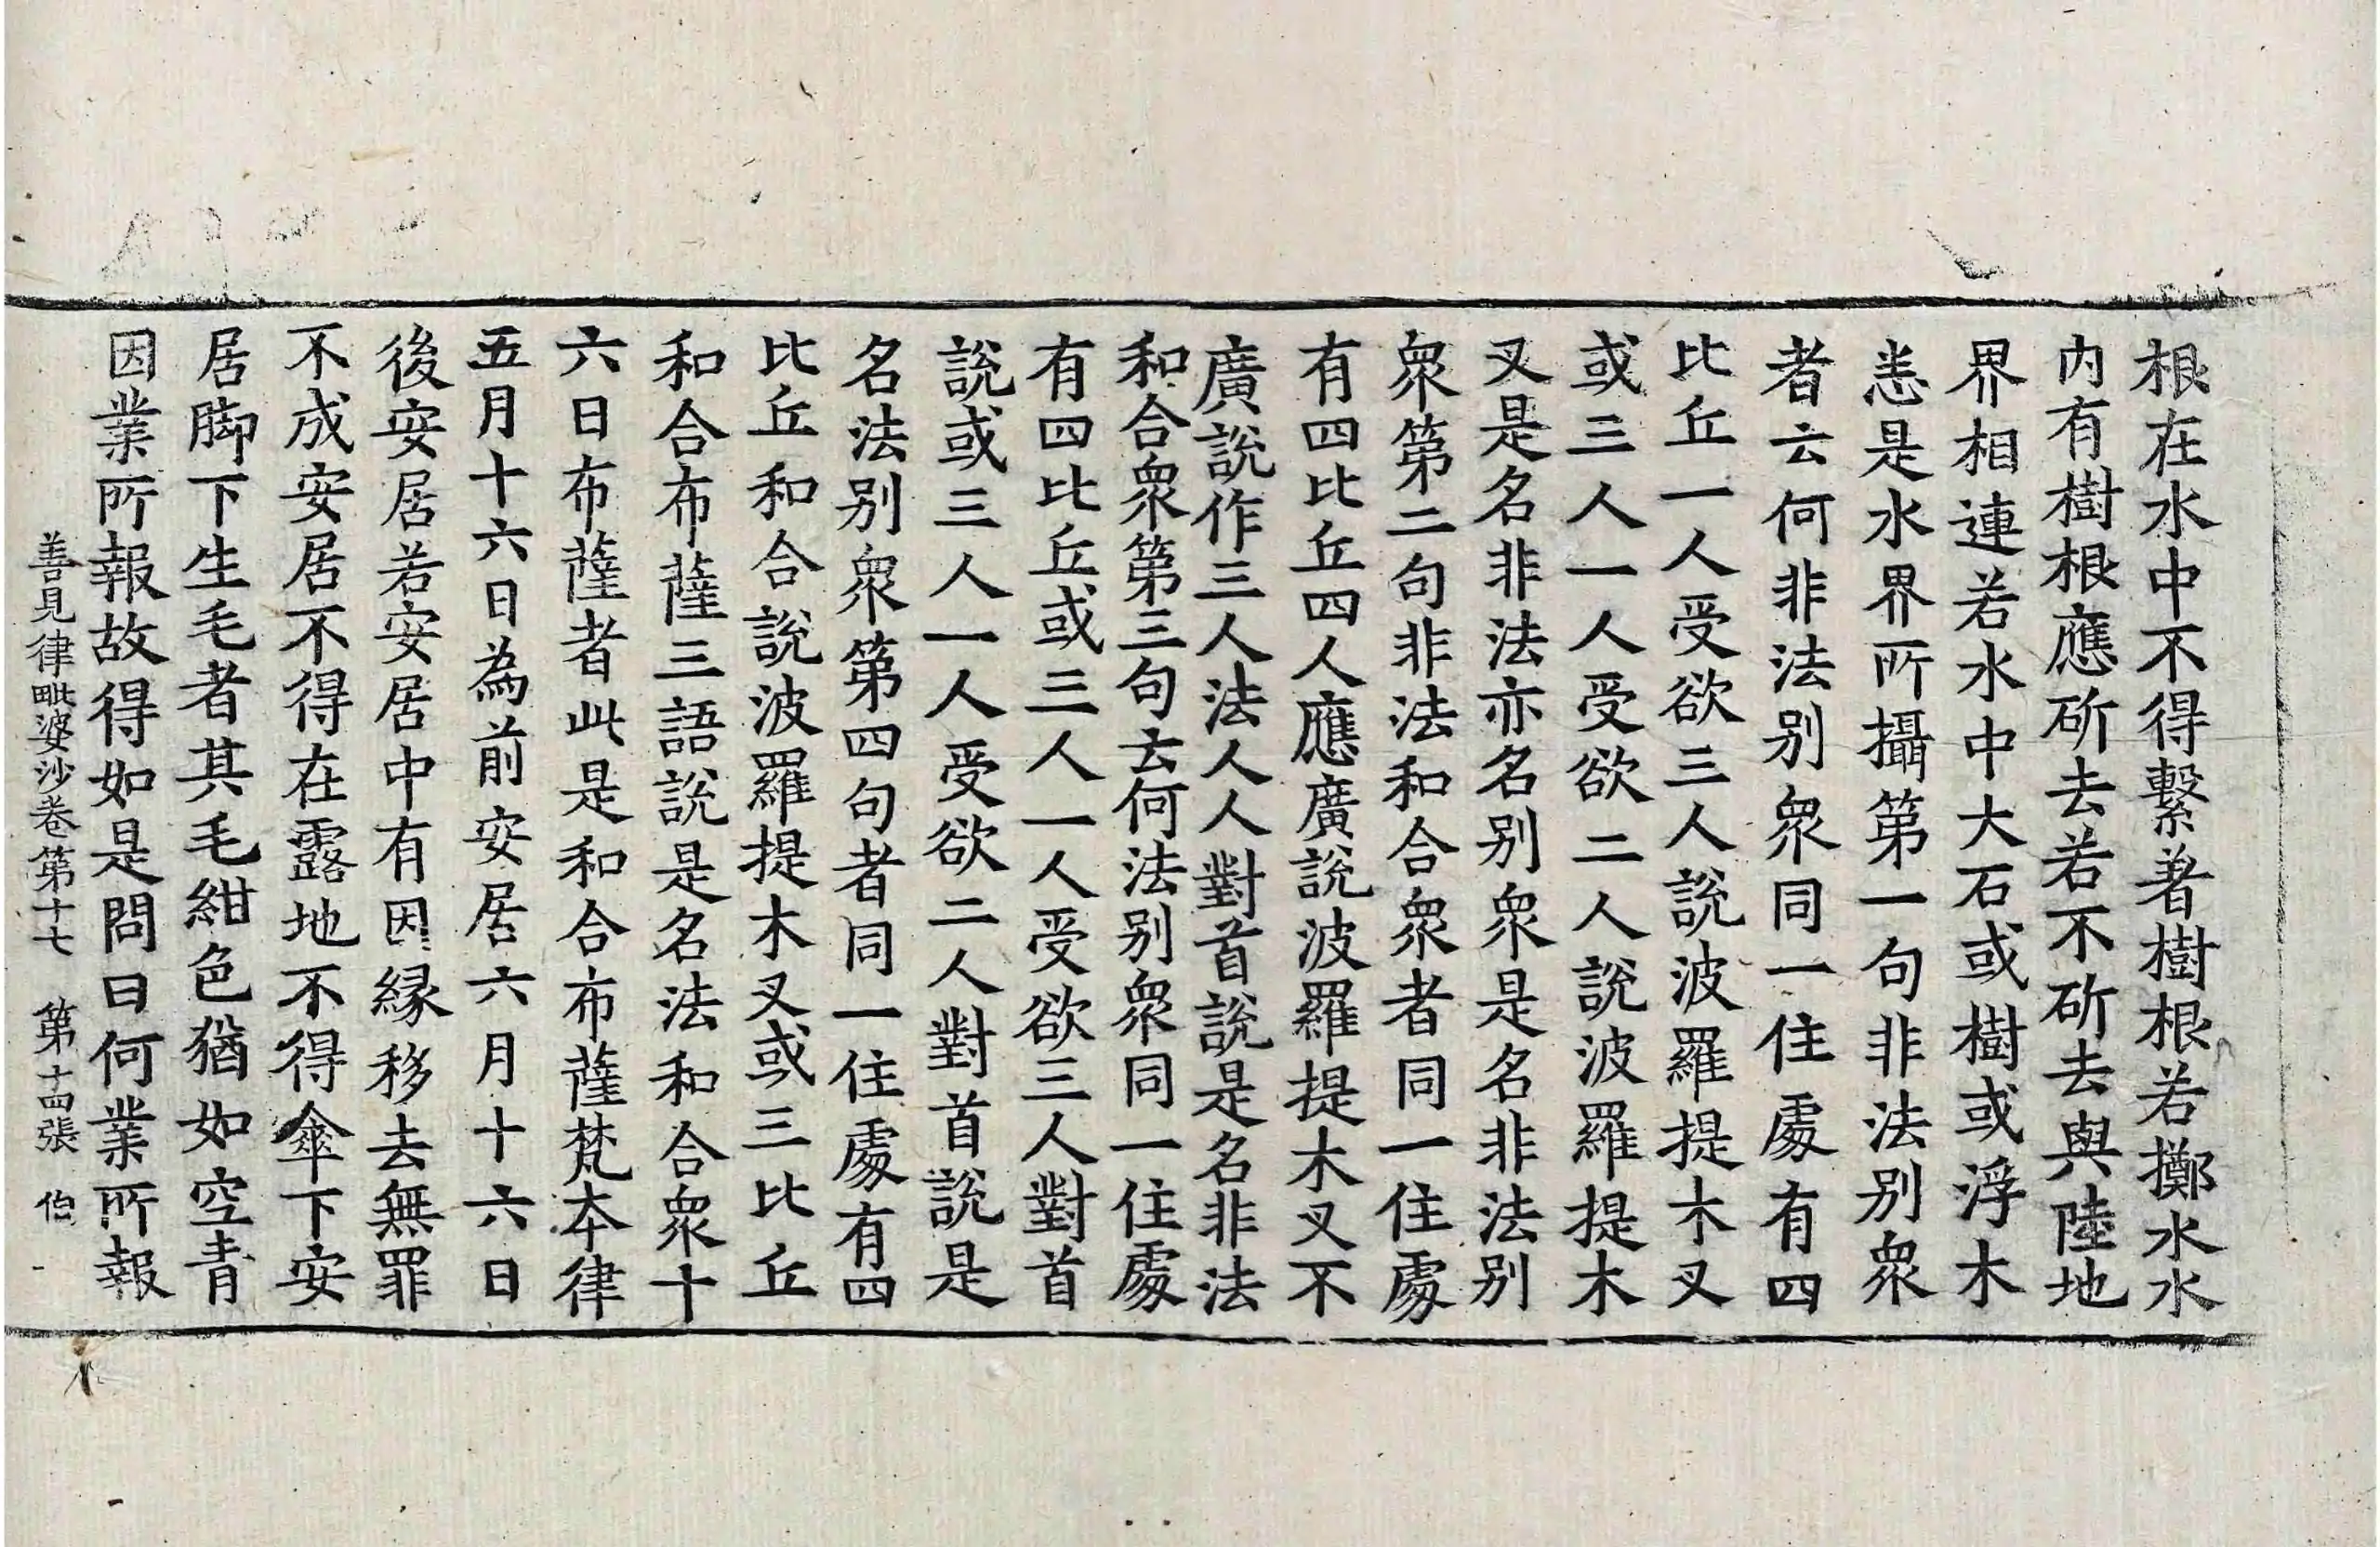 根在水中不得繫著樹根若擲水水
内有樹根應斫去若不斫去與陸地
界相連若水中大石或樹或浮木
悉是水界所攝第一句非法别衆
者云何非法别衆同一住處有四
比丘一人受欲三人說波羅提木叉
或三人一人受欲二人說波羅提木
叉是名非法亦名别衆是名非法别
衆第二句非法和合衆者同一住處
有四比丘四人應廣說波羅提木叉不
廣說作三人法人人對首說是名非法
和合衆第三句云何法别衆同一住處
有四比丘或三人一人受欲三人對首
說或三人一人受欲二人對首說是
名法别衆第四句者同一住處有四
比丘和合說波羅提木叉或三比丘
和合布薩三語說是名法和合衆十
六日布薩者此是和合布薩梵本律
五月十六日為前安居六月十六日
後安居若安居中有因緣移去無罪
不成安居不得在露地不得傘下安
居脚下生毛者其毛紺色猶如空青
因業所報故得如是問曰何業所報
善見律毗婆沙卷第十七 第十四張 伯